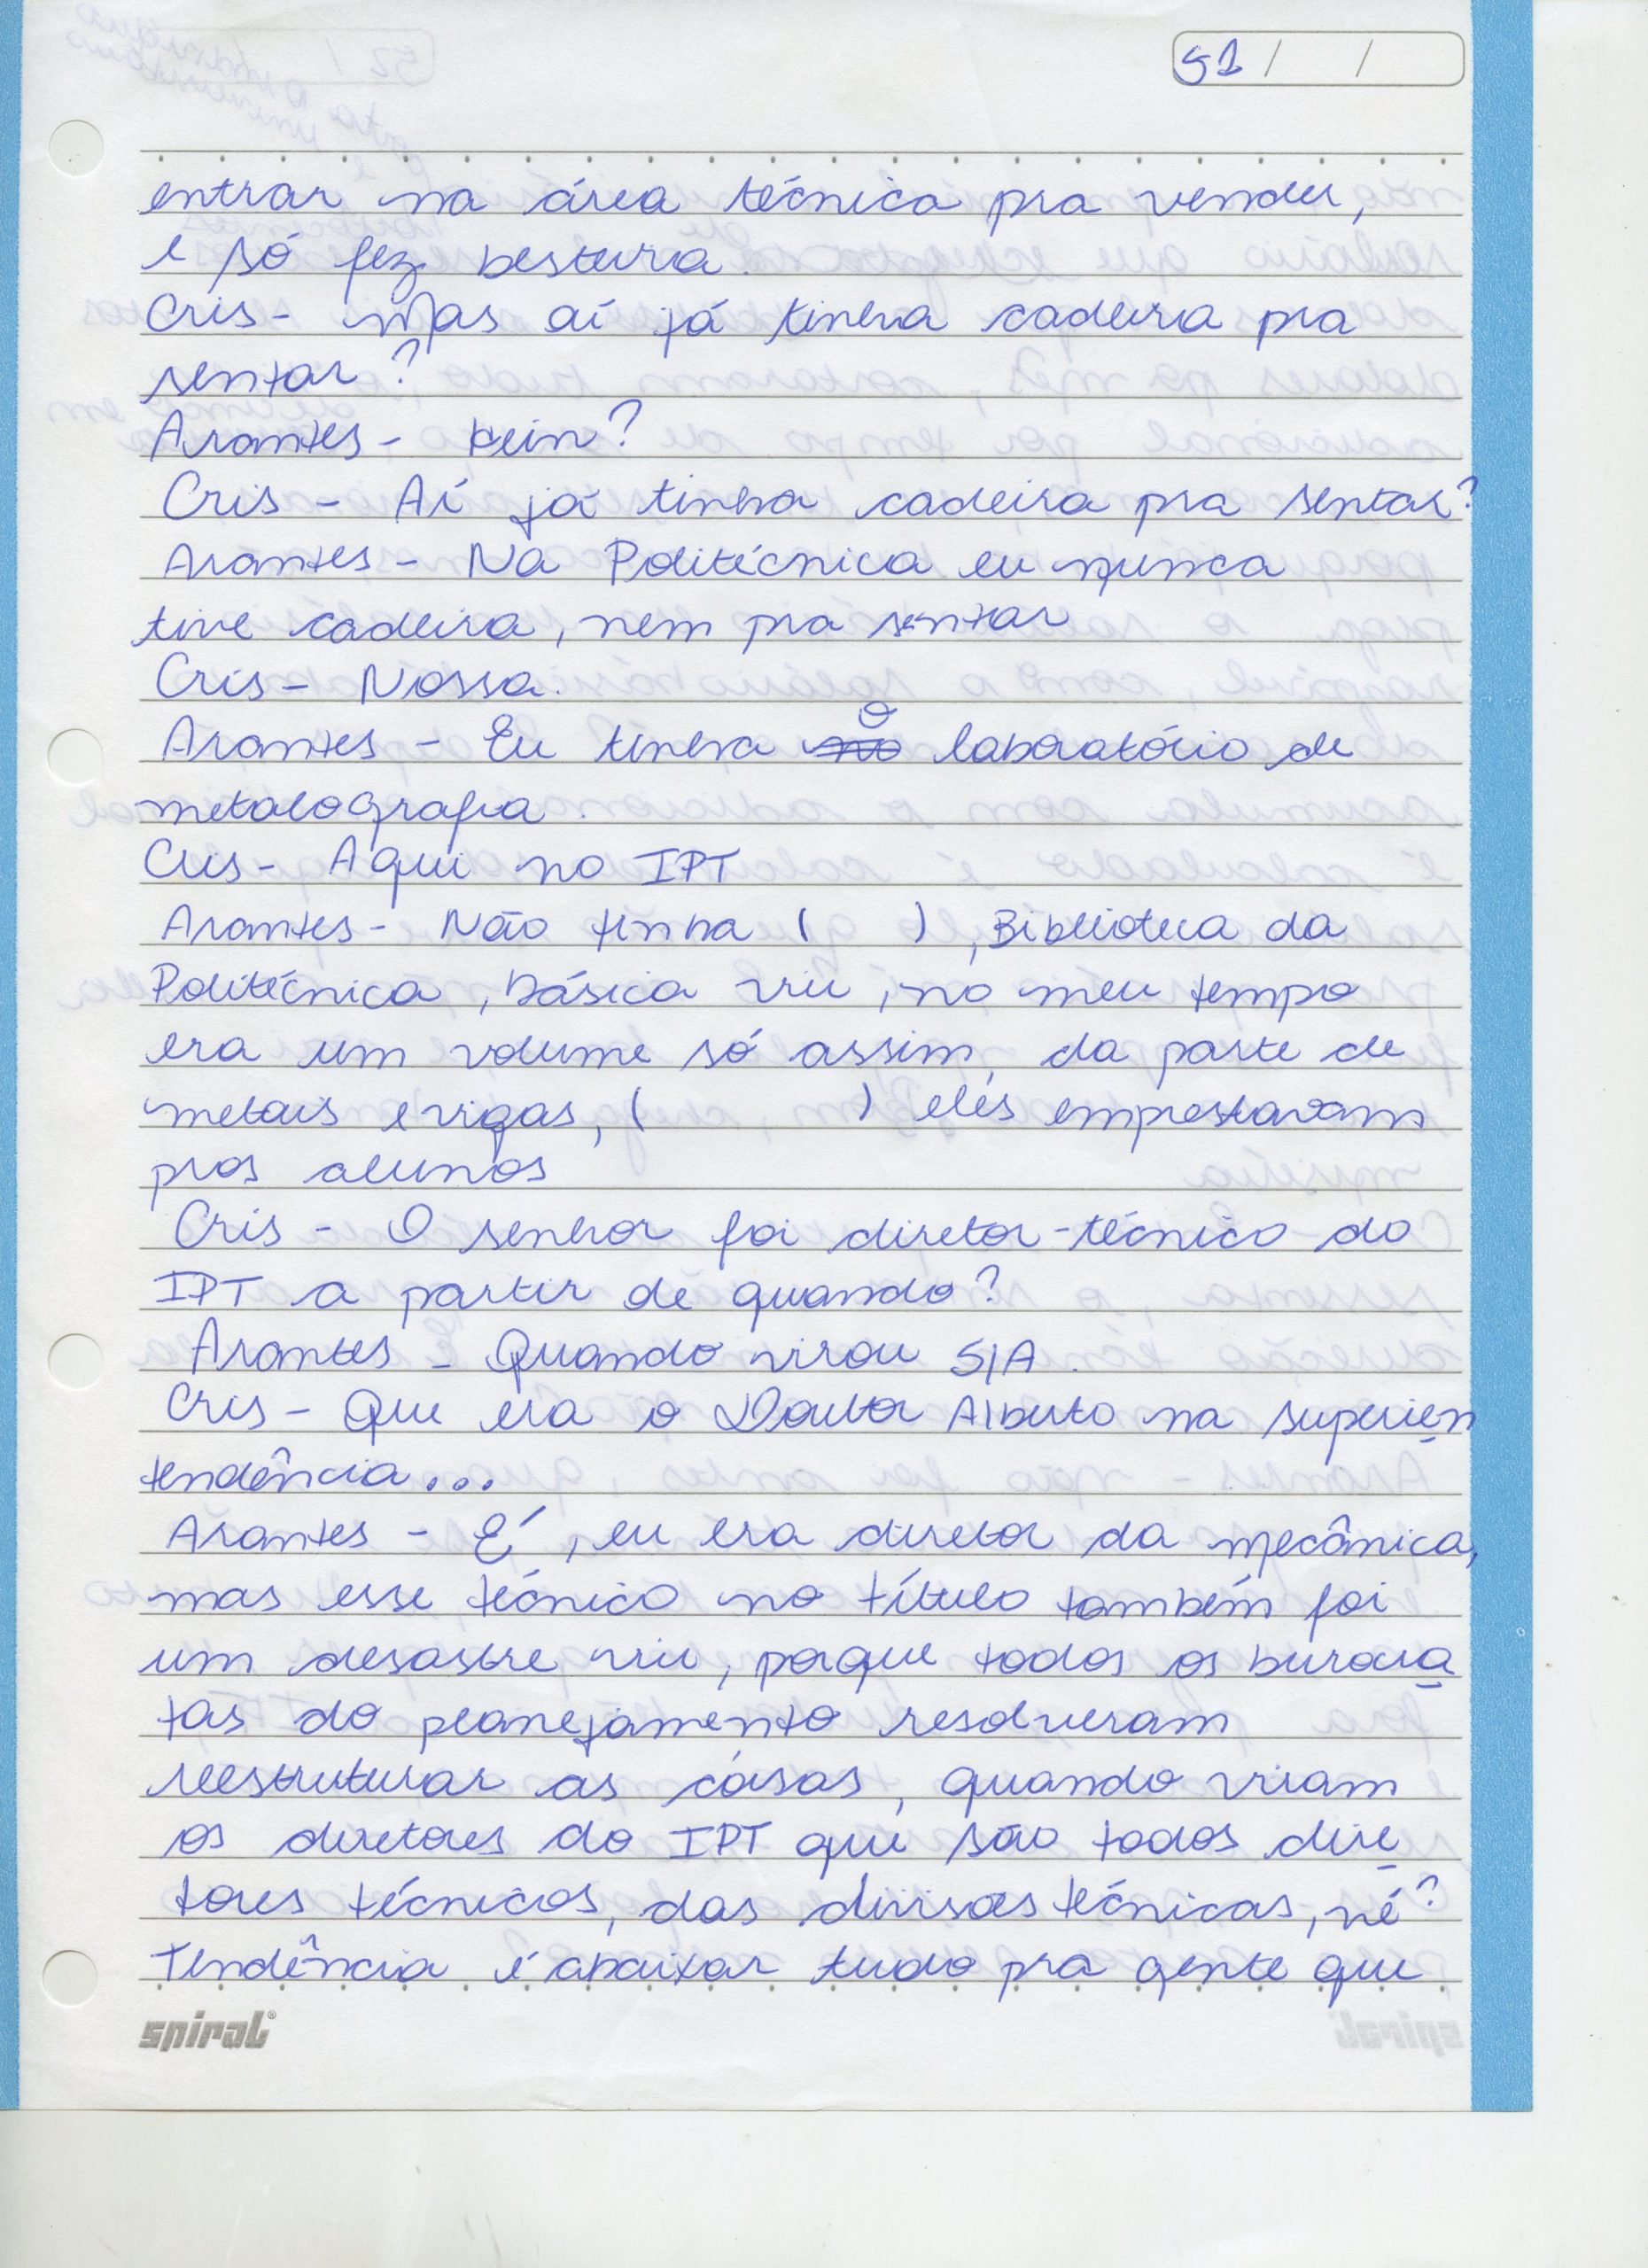 51 / /
entrar na área técnica pra vender,
e só fez besteira.
Cris - Mas aí já tinha cadeira pra
sentar?
Arantes - Hein?
Cris - Aí já tinha cadeira pra sentar?
Arantes - Na Politécnica eu nunca
tive cadeira, nem pra sentar
Cris - Nossa.
Arantes - Eu tinha o laboratório de
metalografia.
Cris - Aqui no IPT
Arantes - Não tinha ( ), Biblioteca da
Politécnica, básica viu, no meu tempo
era um volume só assim, da parte de
metais e vigas, ( ) eles emprestavam
pros alunos
Cris - O senhor foi diretor-técnico do
IPT a partir de quando?
Arantes - Quando virou S/A.
Cris - Que era o Doutor Alberto na superien
tendência...
Arantes - É, eu era diretor da mecânica,
mas esse técnico no título também foi
um desastre viu, porque todos os burocra
tas do planejamento resolveram
reestruturar as casas, quando viram
os diretores do IPT que são todos dire
tores técnicos, das divisões técnicas, né?
Tendência é abaixar tudo pra gente que
spiral®